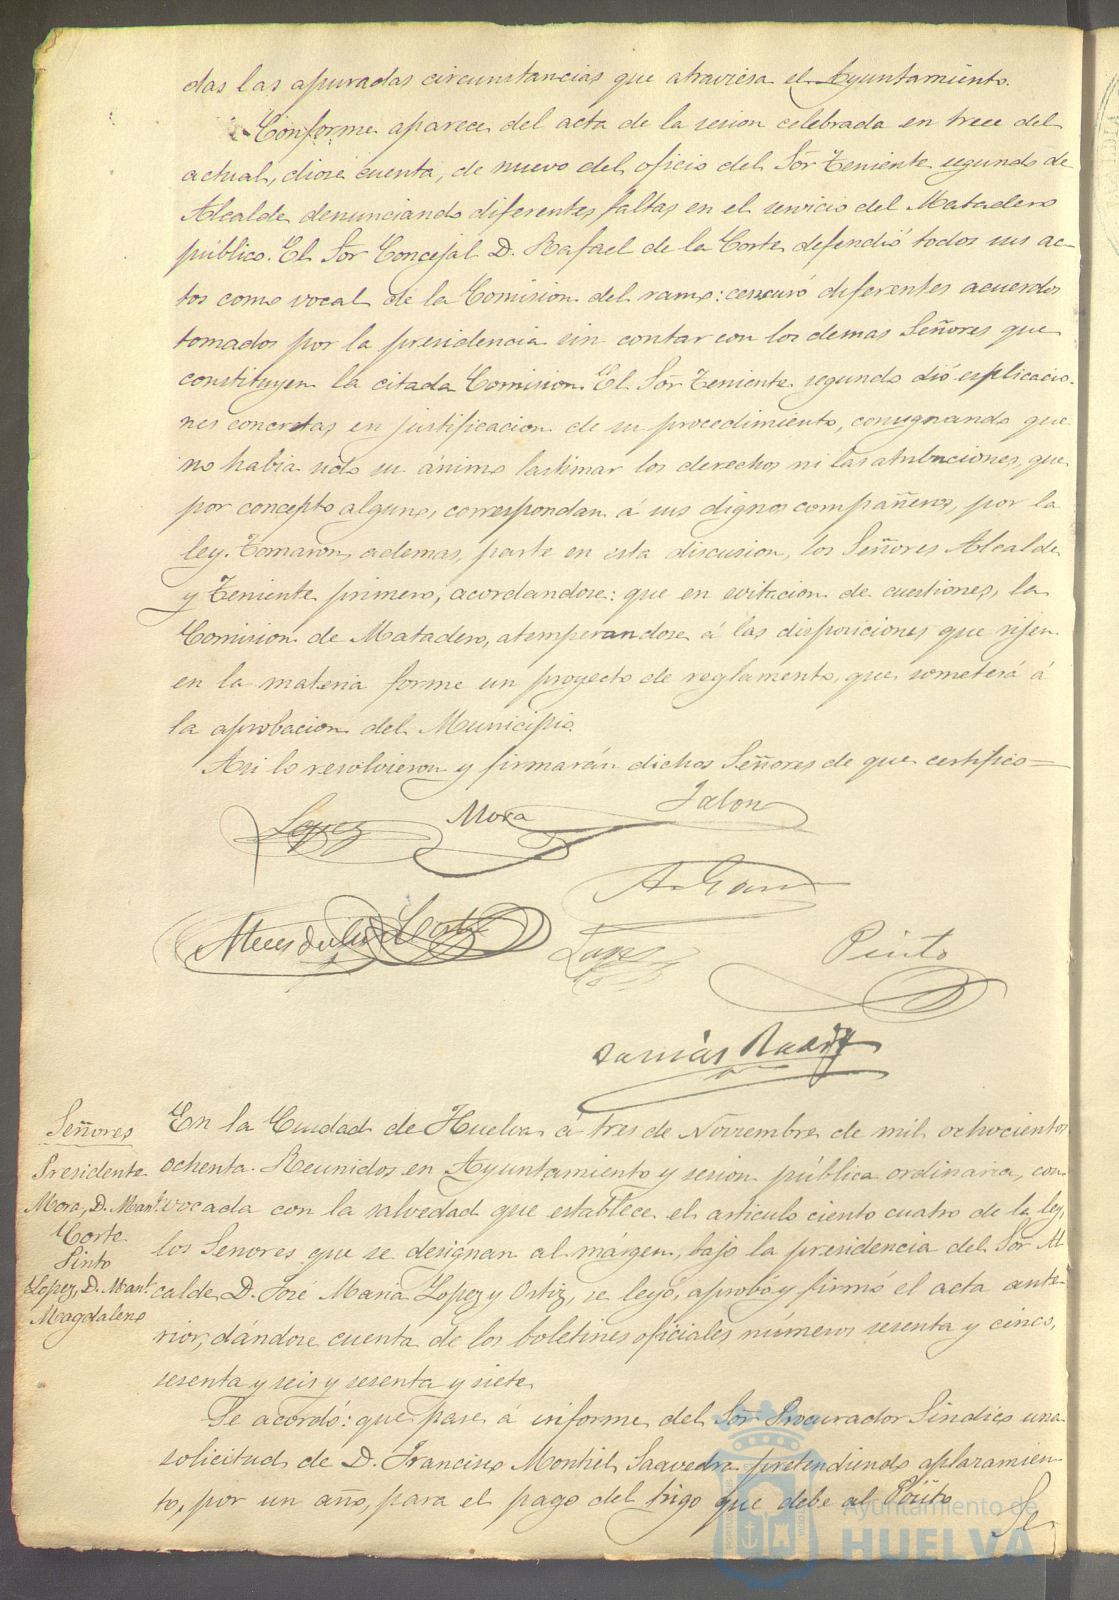 das las apuradas circunstancias que atraviesa el Ayuntamiento.
Conforme aparece del acta de la sesion celebrada en trece del
actual, diose cuenta, de nuevo del oficio del Sór Teniente segundo de
Alcalde denunciando diferentes faltas en el servicio del Matadero
público. El Sór Concejal D. Rafael de la Corte defendió todos sus ac-
tos como vocal de la Comision del ramo: censuró diferentes acuerdos
tomados por la presidencia sin contar con los demas Señores que
constituyen la citada Comision. El Sór Teniente segundo dió esplicacio-
nes concretas en justificacion de su procedimiento, consignando que
no habia sido su ánimo lastimar los derechos ni las atribuciones, que
por concepto alguno, correspondan á sus dignos compañeros, por la
ley. Tomaron, ademas, parte en esta discusion, los Señores Alcalde
y Teniente primero, acordandose: que en evitacion de cuestiones, la
Comision de Matadero, atemperandose á las disposiciones que rijen
en la materia forme un proyecto de reglamento, que someterá á
la aprobacion del Municipio.
Asi lo resolvieron y firmarán dichos Señores de que certifico=
Lopez Mora Jalon
Corte
Lopez Pinto
En la Ciudad de Huelva á tres de Noviembre de mil ochocientos
ochenta. Reunidos en Ayuntamiento y sesion pública ordinaria, con-
vocada con la salvedad que establece el articulo ciento cuatro de la ley,
los Señores que se designan al márgen, bajo la presidencia del Sór Al-
calde D. José Maria Lopez y Ortiz, se leyó, aprobó y firmó el acta ante-
rior, dándose cuenta de los boletines oficiales números sesenta y cinco,
sesenta y seis y sesenta y siete
Señores
Presidente
Mora, D. Manl.
Corte
Pinto
Lopez, D. Manl.
Magdaleno
Se acordó: que pase á informe del Sór Procurador Sindico una
solicitud de D. Francisco Montiel Saavedra pretendiendo aplazamien-
to, por un año, para el pago del trigo que debe al Pósito
Se
Ayuntamiento de
HUELVA